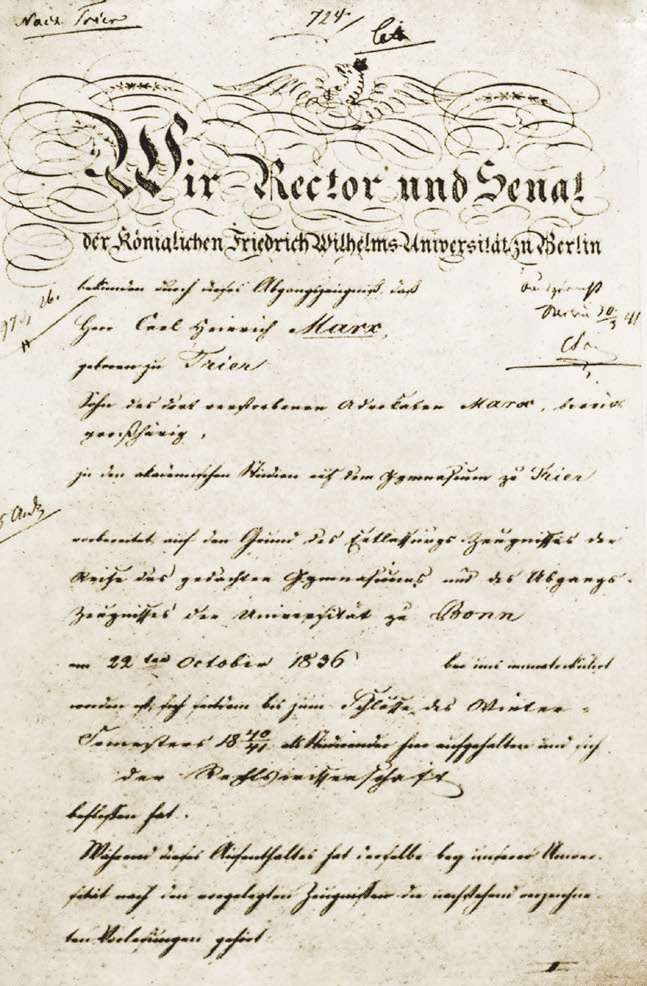 Nach Trier
724
Wir Rector und Senat
der Königlichen Friedrich Wilhelms-Universität zu Berlin
bekunden durch dieses Abgangszeugniß, daß
Herr Carl Heinrich Marx,
geboren zu Trier
Sohn des verstorbenen Advokaten Marx,
großjährig,
zu den akademischen Studien auf dem Gymnasium zu Trier
vorbereitet, auf den Grund des Entlassungs-Zeugnisses der
Reife des gedachten Gymnasiums und des Abgangs-
Zeugnisses der Universität zu Bonn
am 22ten October 1836 bei uns immatriculirt
worden ist, sich seitdem bis zum Schlusse des Winter-
Semesters 18 40/41 als Studirender hier aufgehalten und sich
der Rechtswissenschaft
beflissen hat.
Während dieses Aufenthaltes hat derselbe bey unserer Univer-
sität nach den vorgelegten Zeugnissen die nachstehend verzeichne-
ten Vorlesungen gehört: